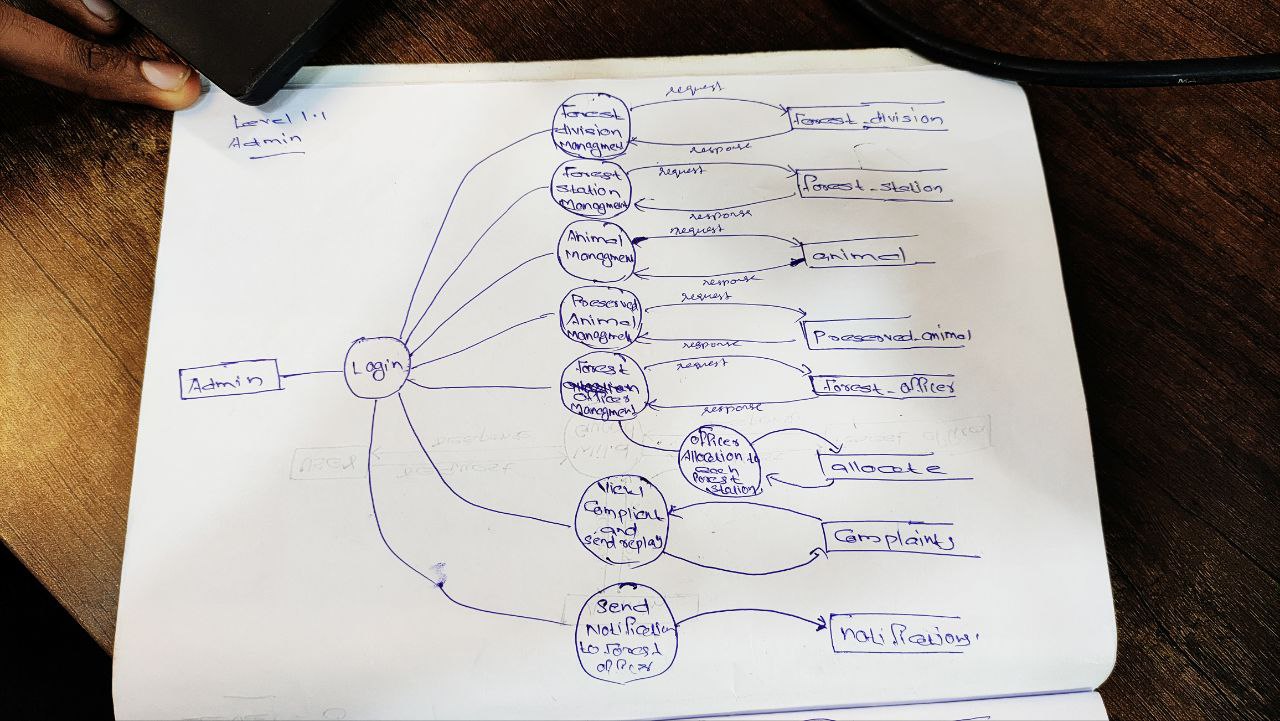 Level 1.1
Admin
Forest
division
Managment
request
response
Forest_division
Forest
Station
Managment
request
response
Forest_station
Animal
Managment
request
response
animal
Preserved
Animal
Managment
request
response
Preserved_animal
Admin
Login
Forest
Officer
Managment
request
response
Forest_officer
Officer
Allocation to
each
Forest
Station
allocate
View
Complient
and
Send replay
Complaints
Send
Notification
to Forest
officer
notifications